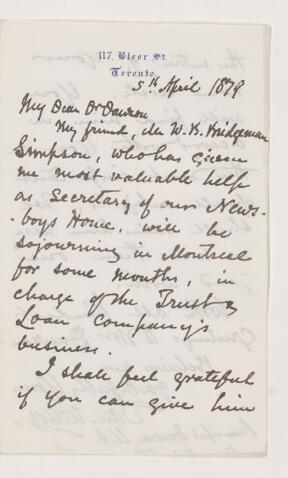 117, Bloor St
Toronto.
5th April 1879
My Dear Dr Dawson
My friend, Mr W. B. Bridgeman
Simpson, who has given
me most valuable help
as Secretary of our News-
boys Home, will be
sojourning in Montreal
for some months, in
charge of the Trust &
Loan Company's
business.
I shall feel grateful
if you can give him